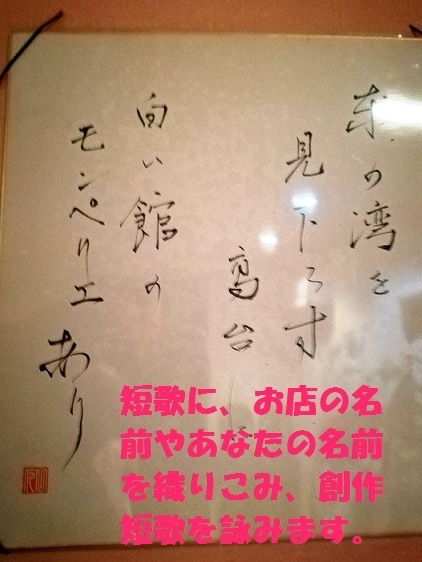 東の湾を
見下ろす
高台に
白い館の
モンペリエ
あり
短歌に、お店の名
前やあなたの名前
を織りこみ、創作
短歌を詠みます。